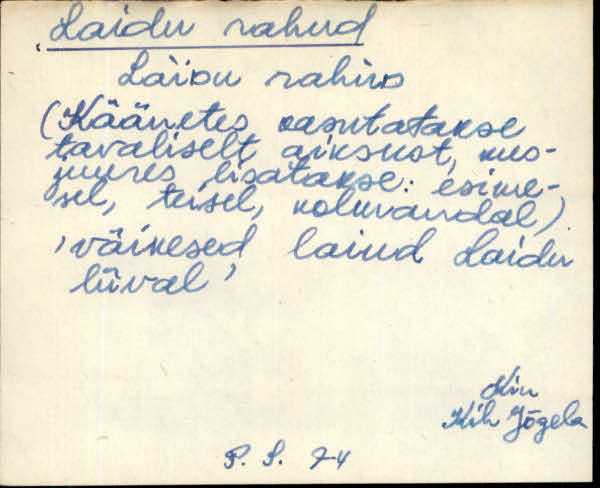 Laidu rahud
Laiðu rahuᴅ
(Käänetes kasutatakse
tavaliselt ainsust, kus-
juures lisatakse: esime-
sel, teisel, kolmandal)
'väikesed laiud Laidu
liival'
Khn
Kih Jõgela
P. S. 74